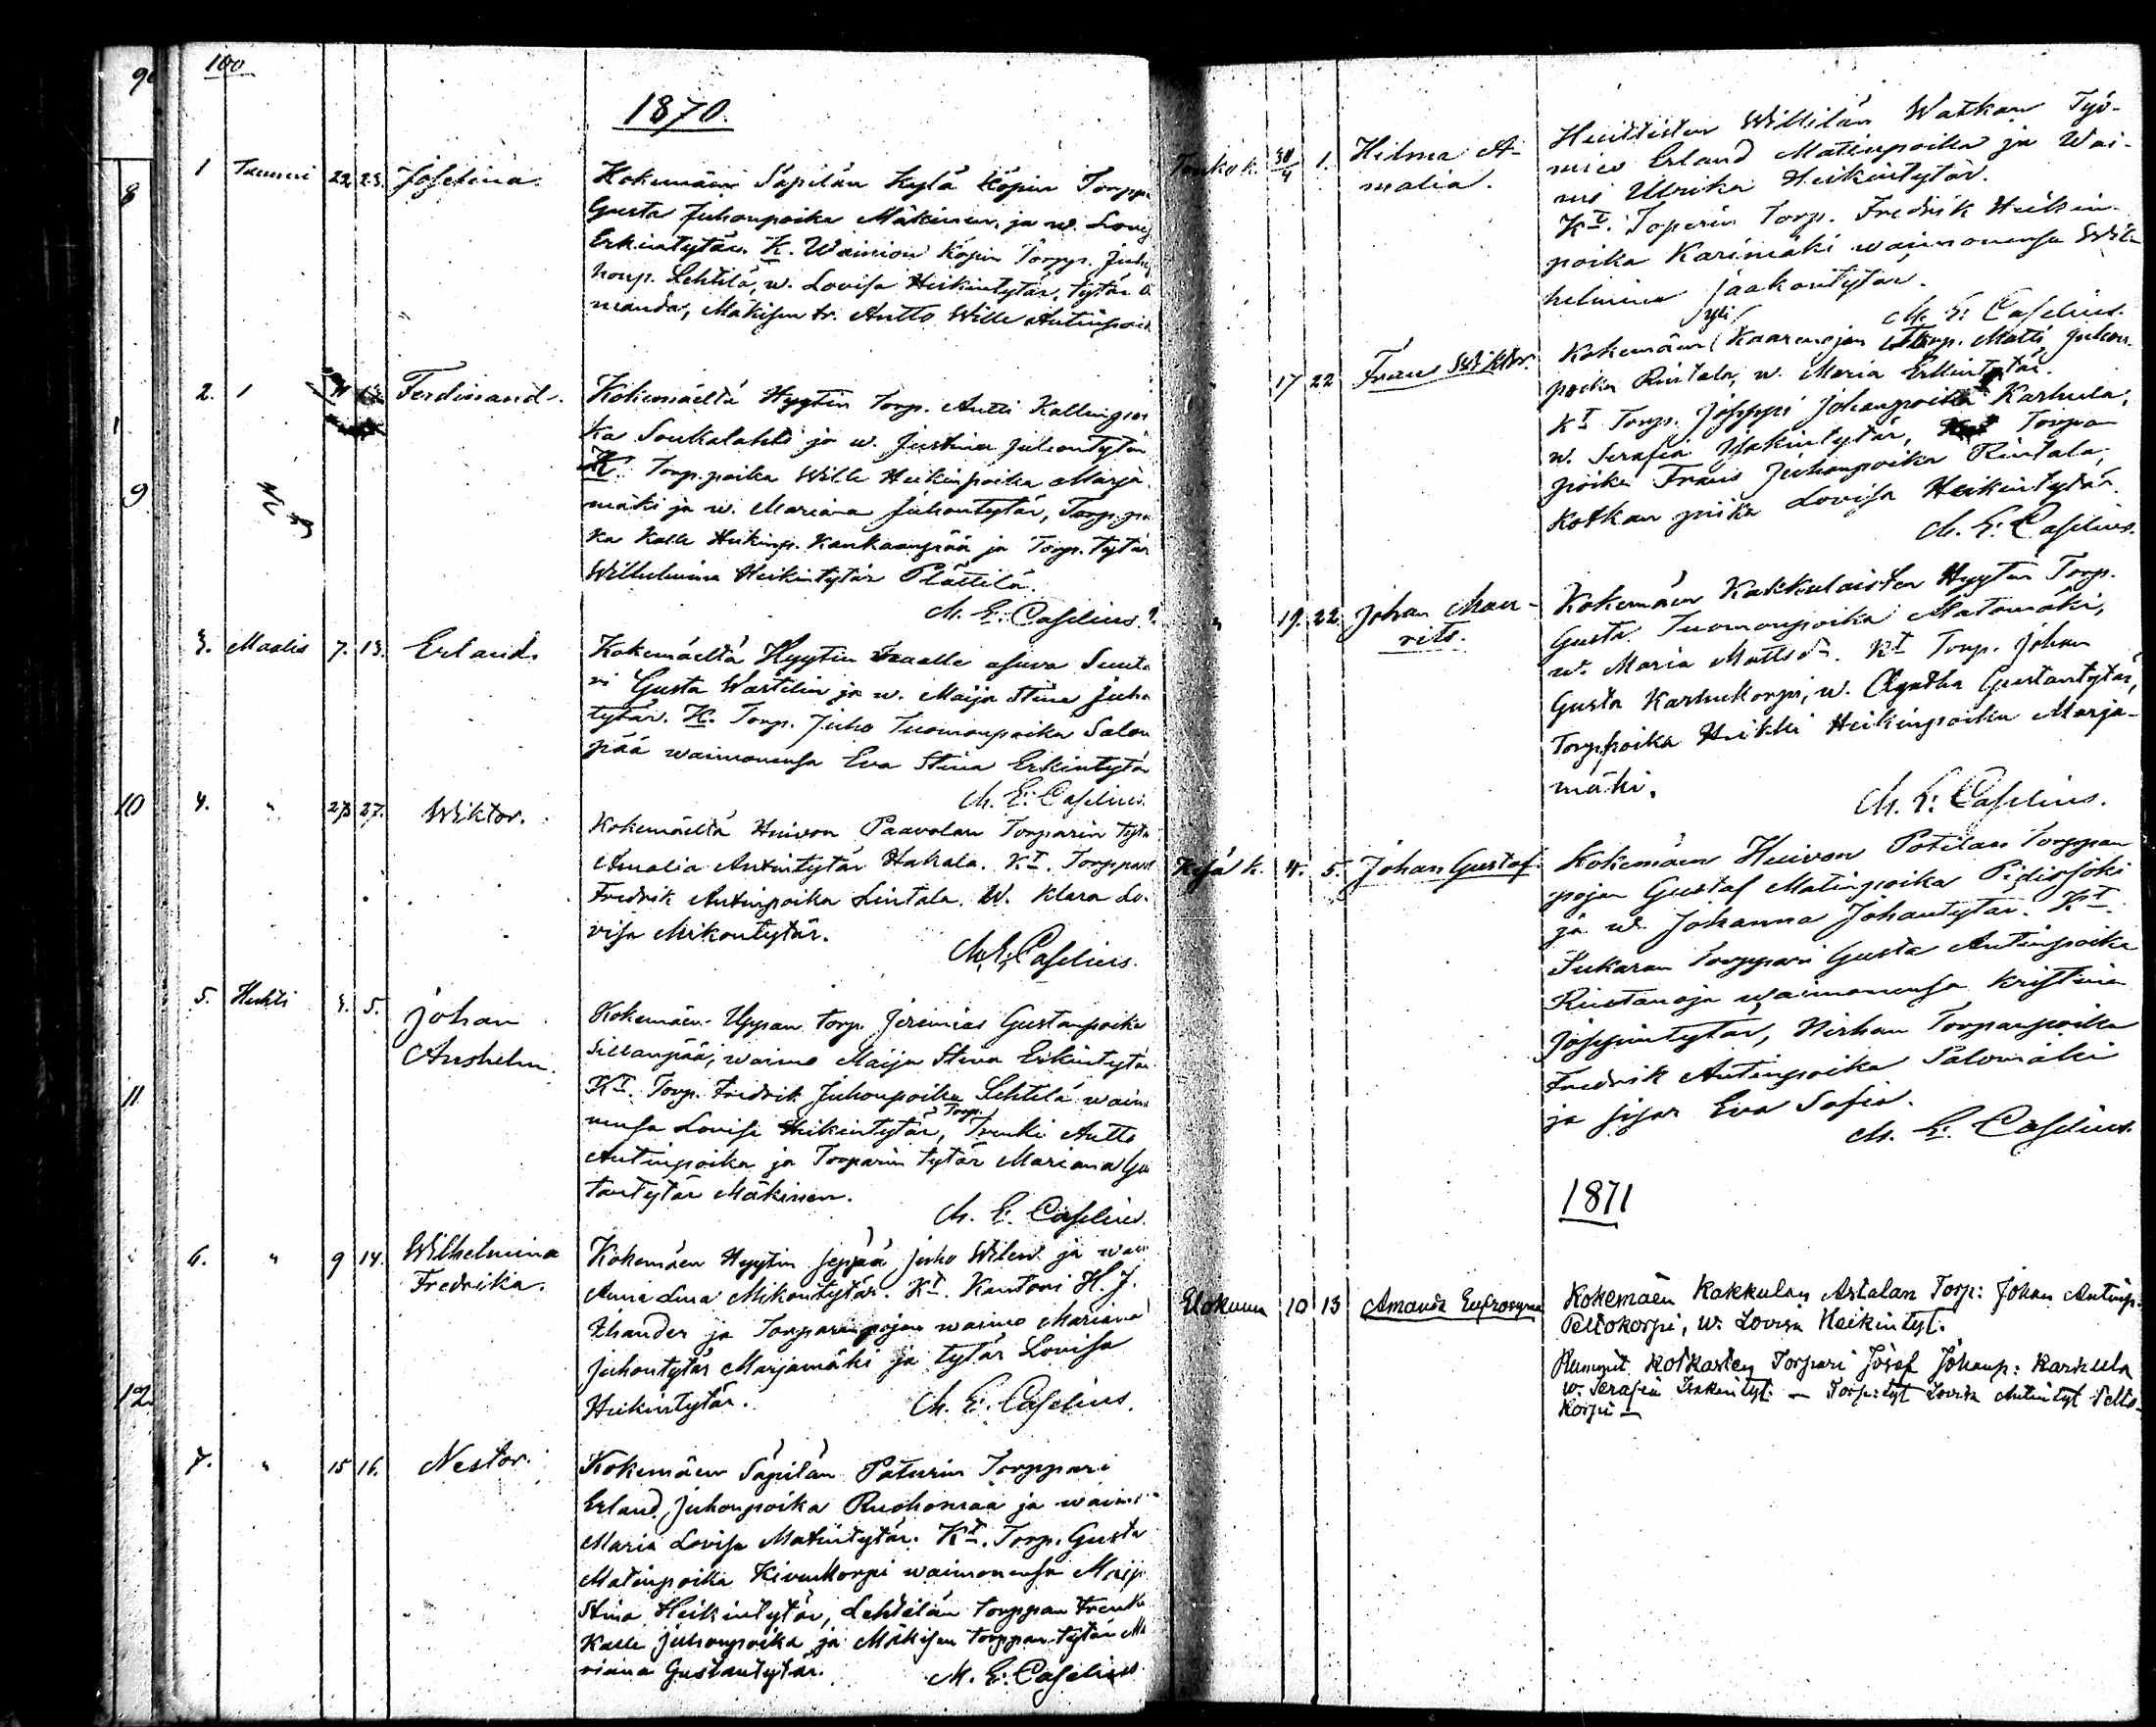 100
1870.
1 Tammi 22 23. Josefina. Kokemäen Säpilän Kylä Köpin Torppa
Gusta Juhonpoika Mäkinen, ja w. Lovis
Erkintytär. K. Wainion Köpin Torpp. Juha
honp. Lehtilä, w. Lovisa Heikintytär, tytär A
manda, Mäkisen tr. Antto Wille Antinpoik
2. Ferdinand. Kokemäeltä Hyytin Torp. Antti Kallenpoi
ka Soukalahti ja w. Justina Juhontytär
K. Torp.poika Wille Heikinpoika Marja
mäki ja w. Mariana Juhontytär, Torp.poi
ka Kalle Heikinp. Kankaanpää ja Torp. tytär
Wilhelmina Heikintytär Plättilä.
M. E. Caselius.
3. Maalis 7. 13. Erland. Kokemäeltä Hyytin maalle asuva Suuta
ri Gusta Wartelin ja w. Maija Stina Juho
tytär. K. Torp. Juho Tuomonpoika Salon
pää waimonensa Eva Stina Erkintytär
M. E. Caselius.
4. " 23 27. Wiktor. Kokemäeltä Huivon Paavolan Torparin tytä
Amalia Antintytär Hakala. Kt. Torppari
Fredrik Antinpoika Lintala. W. Klara Lo-
visa Mikontytär.
M. E. Caselius.
5. Huhti 3. 5. Johan Kokemäen Uppan torp. Jeremias Gustanpoika
Anshelm. Sillanpää, waimo Maija Stina Erkintytär
Kt. Torp. Fredrik Juhonpoika Lehtilä waimo
nensa Lovisa Heikintytär, Torp. Trenki Antto
Antinpoika ja Torparin tytär Mariana Gus
tantytär Mäkinen.
M. E. Caselius.
6. " 9 14. Wilhelmina Kokemäen Hyytin seppää Juho Wilen ja wai
Fredrika. Anna Lina Mikontytär. Kt. Kantori H. J.
Thander ja Torparinpojan waimo Mariana
Juhontytär Marjamäki ja tytär Lovisa
Heikintytär. M. E. Caselius.
7. " 15 16. Nestor. Kokemäen Säpilän Paturin Torppari
Erland Juhonpoika Ruohomaa ja waimo
Maria Lovisa Matintytär. Kt. Torp. Gusta
Matinpoika Kivenkorpi waimonensa Maija
Stina Heikintytär, Lehtilän torppan trenki
Kalle Juhonpoika ja Mäkisen torppan tytär Ma
riana Gustantytär. M. E. Caselius
Toukok. 30/4 1. Hilma A- Huittisten Willilän Watkan Työ-
malia. mies Erland Matinpoika ja Wai-
mo Ulrika Heikintytär.
Kt. Toparin Torp. Fredrik Heikin
poika Karimäki waimonensa Wil-
helmina Jaakontytär.
M. E. Caselius.
17 22 Frans Wiktor. Kokemäen Kaarenojan Torp. Matti Juhon-
poika Rintala, w. Maria Erkintytär.
Kt Torp. Joseppi Johanpoika Karhula,
w. Serafia Isakintytär, Torpan
poika Frans Juhonpoika Rintala,
Kotkan piika Lovisa Heikintytär.
M. E. Caselius.
" 19. 22. Johan Mau- Kokemäen Kakkulaisten Hyytin Torp.
rits. Gusta Tuomonpoika Matomäki,
w. Maria Mattsdr. Kt Torp. Johan
Gusta Karhukorpi, w. Agatha Gustantytär,
Torp.poika Heikki Heikinpoika Marja-
mäki.
M. E. Caselius.
Kesä k. 4. 5. Johan Gustaf. Kokemäen Huivon Potilan Torppan
pojan Gustaf Matinpoika Pidisjoki
ja w. Johanna Johantytär. Kt.
Pukaran Torppari Gusta Antinpoika
Rintanoja waimonensa Kristina
Josepintytär, Hirhan Torpanpoika
Fredrik Antinpoika Salomäki
ja sisar Eva Sofia.
M. E. Caselius.
1871
Elokuun 10 13 Amanda Eufrosyna Kokemäen Kakkulan Astalan Torp: Johan Antinp.
Peltokorpi, w. Lovisa Heikintyt.
Kummit Kotkasten Torpari Josef Johanp: Karhula
w. Serafia Isakintyt. — Torp: tyt Lovisa Antintyt Pelto-
korpi —